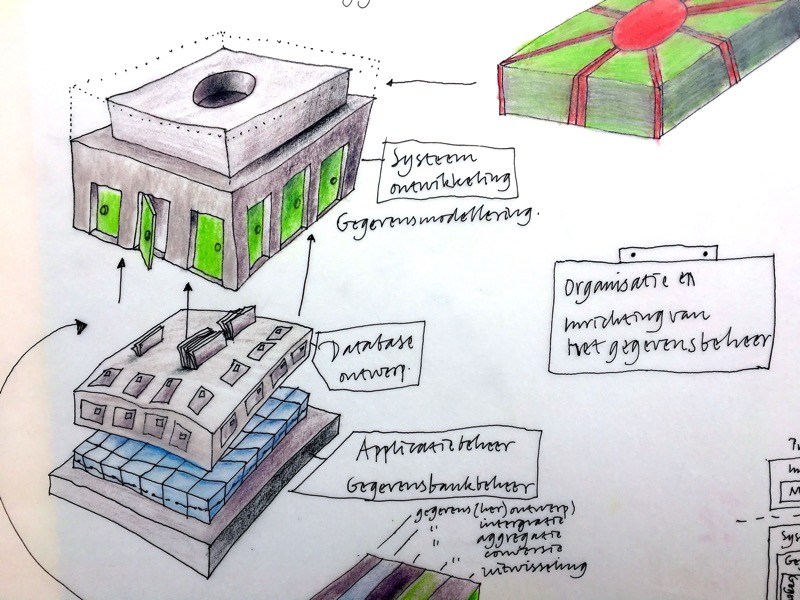 Systeem
ontwikkeling
Gegevensmodellering.
Organisatie en
inrichting van
het gegevensbeheer
Database
ontwerp.
Applicatiebeheer
Gegevensbankbeheer
gegevens (her) ontwerp)
" intergratie
" aggregatie
conversie
" uitwisseling
Sys
Ge